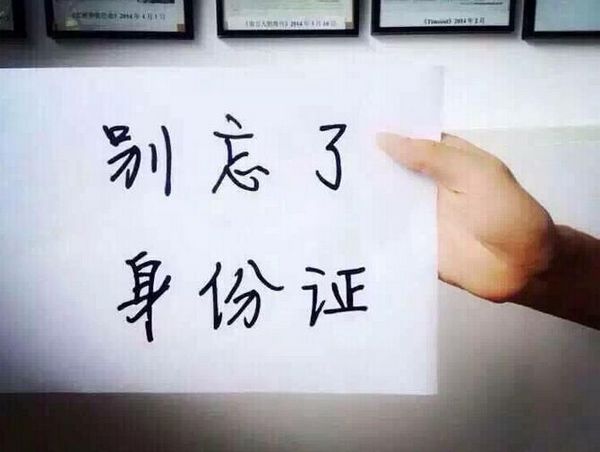 2014年4月1日
2014年5月10日
《Timeout》2014年2月
别忘了
身份证